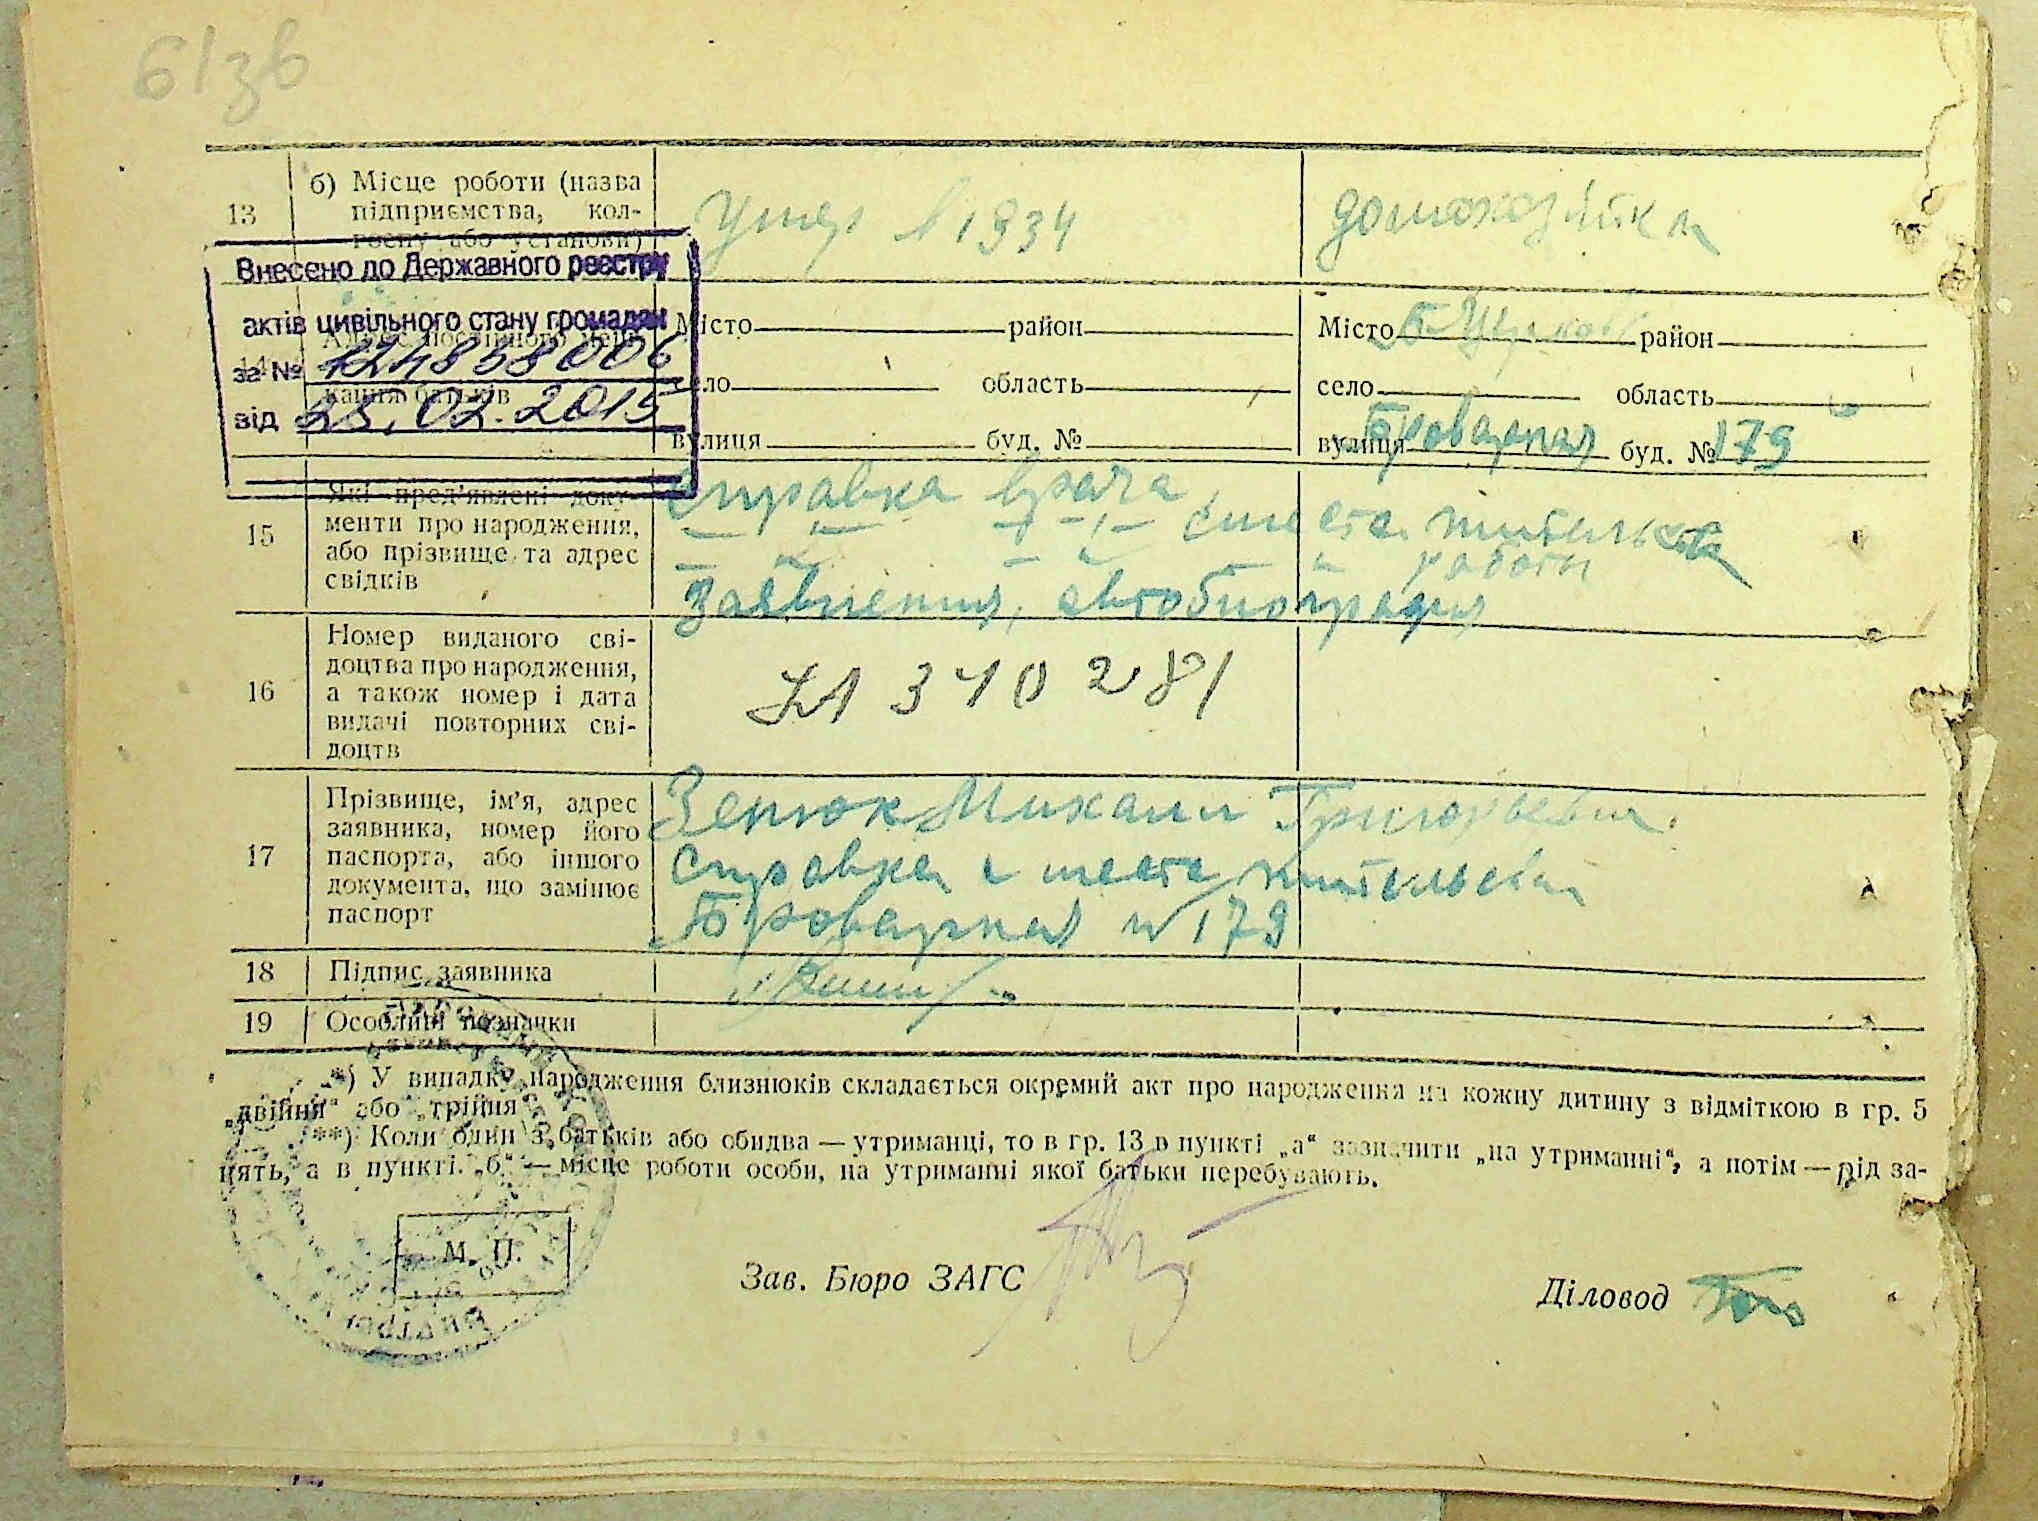 61зв
13
б) Місце роботи (назва
підприємства, кол-
госпу або установи)
умер в 1934
домохозяйка
Внесено до Державного реєстру
актів цивільного стану громадян
за №
від 25.02.2015
14
Адрес постійного меш-
кання батьків
Місто район
село область
вулиця буд. №
Місто район
село область
вулиця Броварная буд. № 179
15
Які пред'явлені доку-
менти про народження,
або прізвище та адрес
свідків
справка врача,
с места жительства
работы
Заявления, автобиография
16
Номер виданого сві-
доцтва про народження,
а також номер і дата
видачі повторних сві-
доцтв
310281
17
Прізвище, ім'я, адрес
заявника, номер його
паспорта, або іншого
документа, що замінює
паспорт
Зенюк Михаил Григорьевич
справка с места жительства
Броварная № 179
18 Підпис заявника
19 Особливі позначки
*) У випадку народження близнюків складається окремий акт про народження на кожну дитину з відміткою в гр. 5
„двійня“ або „трійня“
**) Коли один з батьків або обидва — утриманці, то в гр. 13 в пункті „а“ зазначити „на утриманні“, а потім — рід за-
нять, а в пункті „б“ — місце роботи особи, на утриманні якої батьки перебувають.
М. П.
Зав. Бюро ЗАГС
Діловод